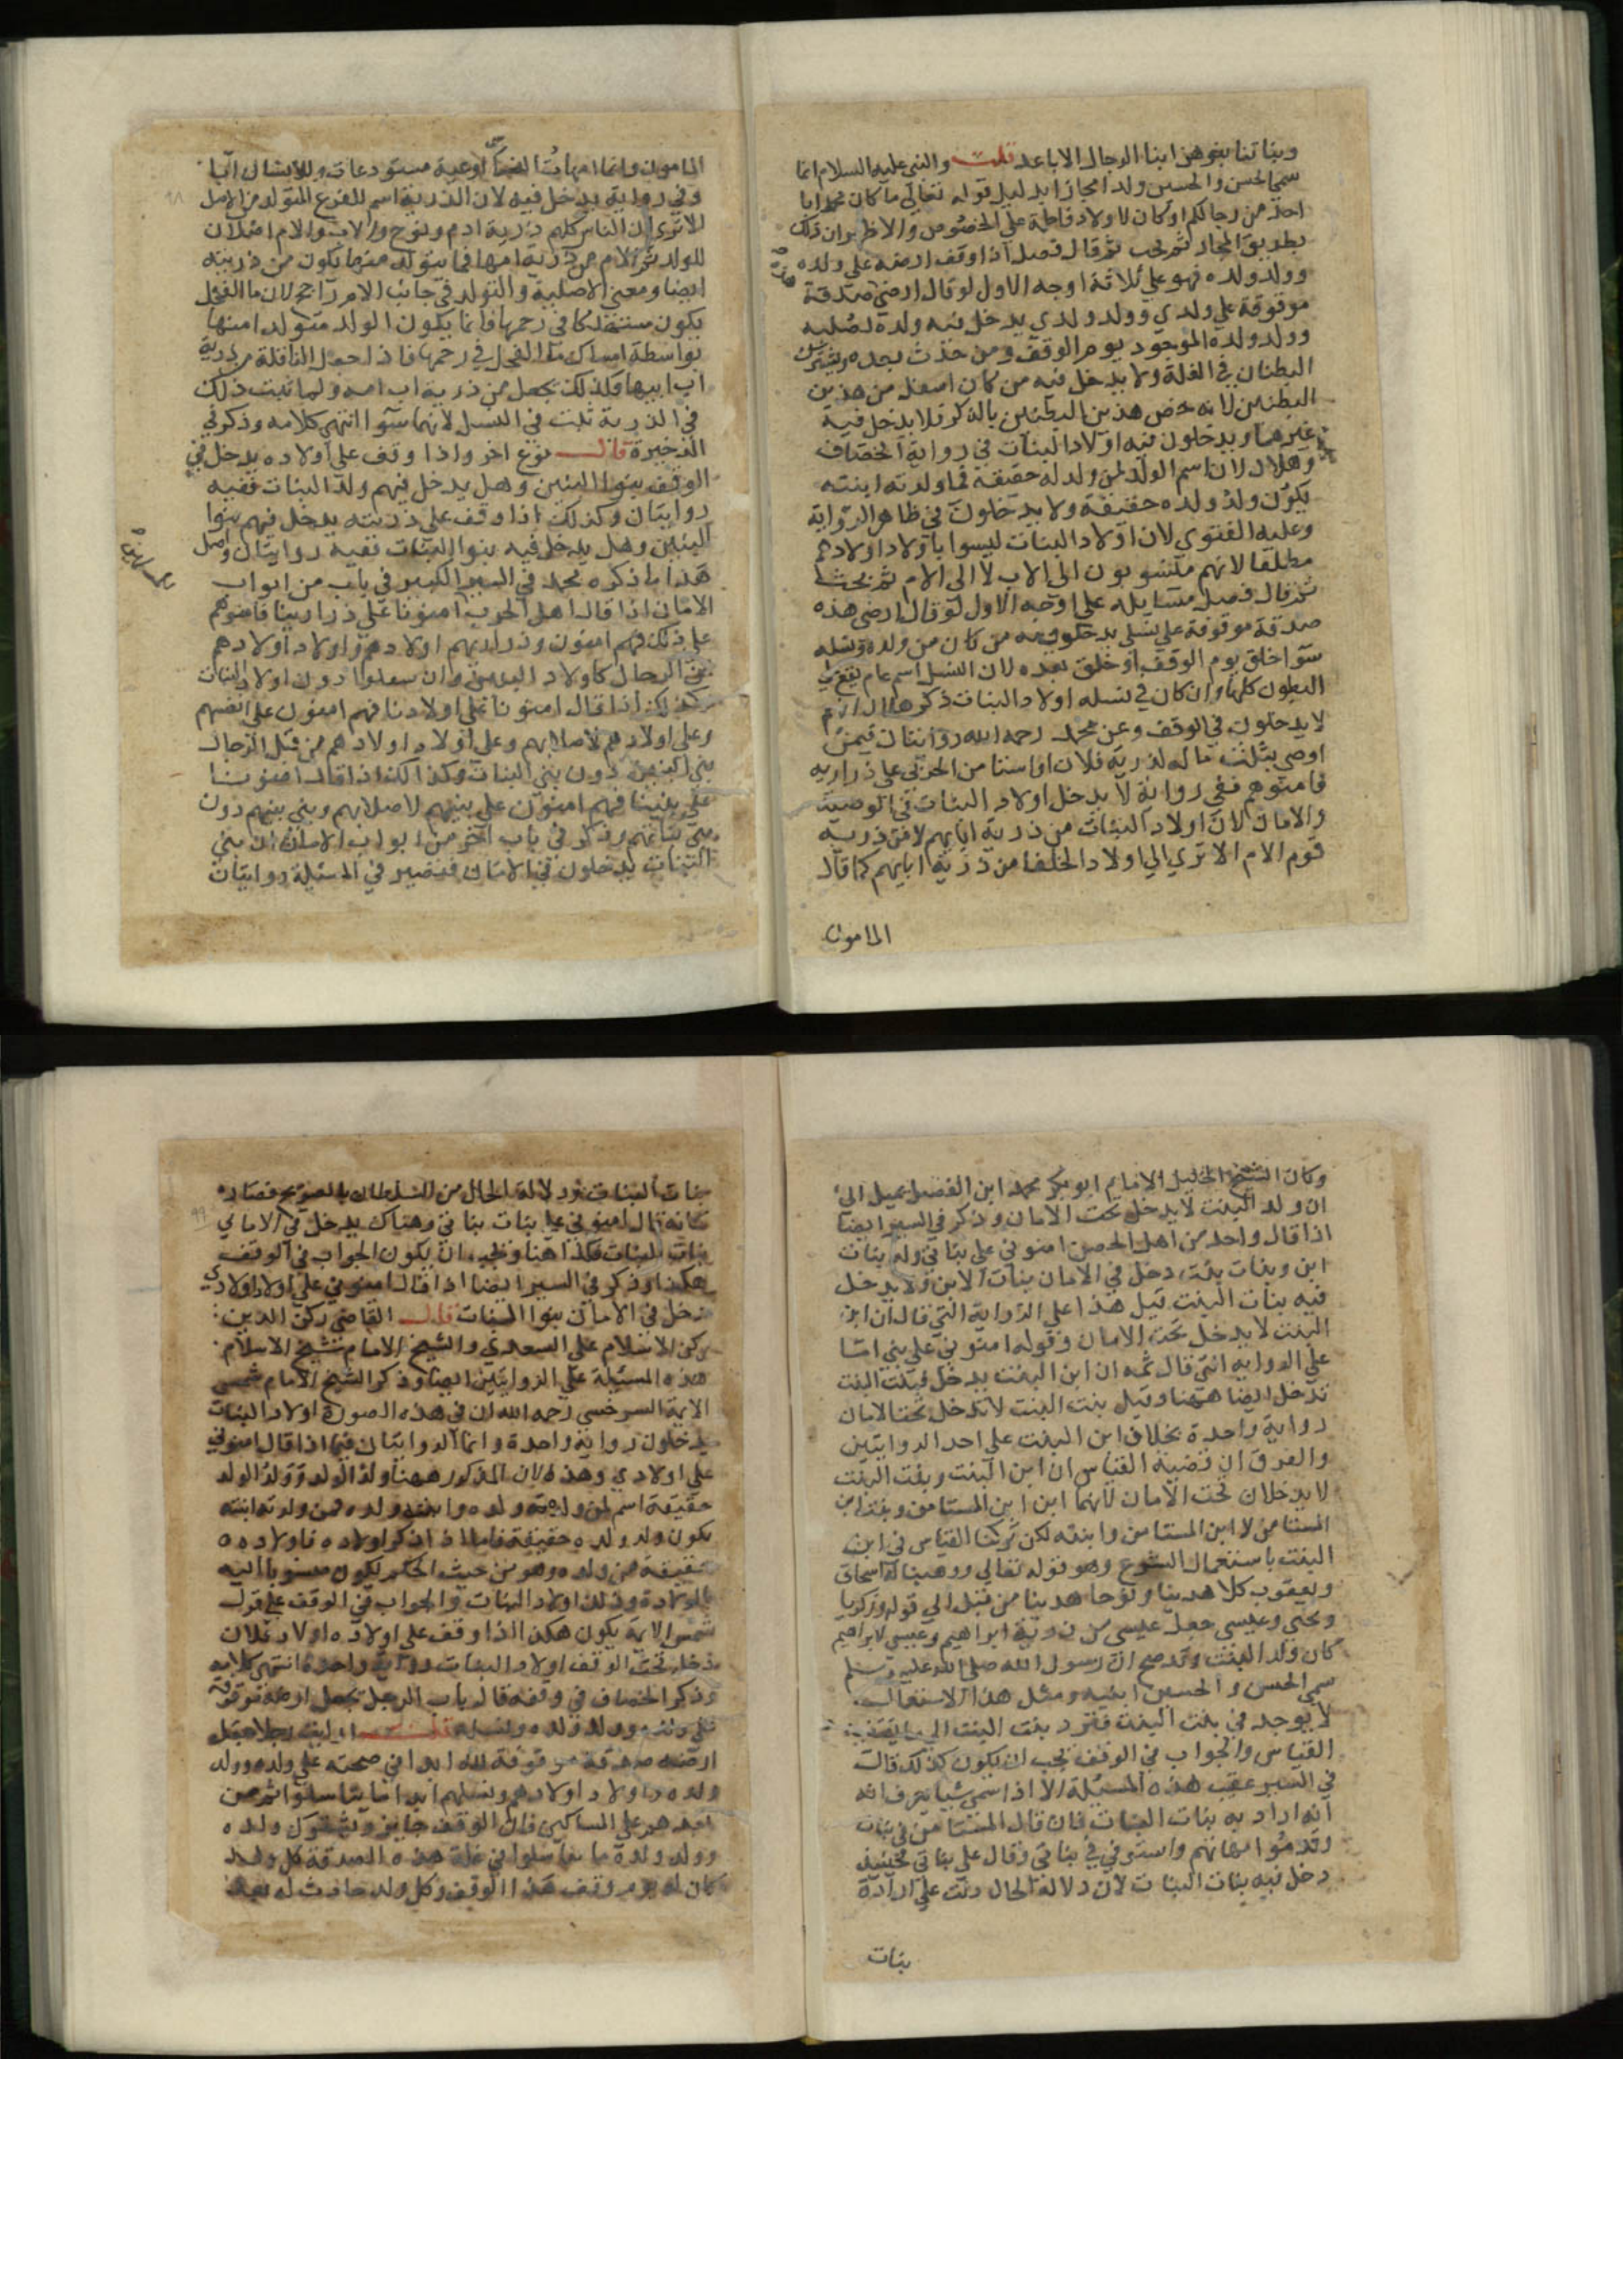 وبناتنا بنوهن ابنا الرجال الاباعد قلت والنبي عليه السلام انما
سمي الحسن والحسين ولدا مجازا بدليل قوله تعالي ما كان محمد ابا
احد من رجالكم او كان لاولاد فاطمة علي الخصوص والاظهر ان ذلك
بطريق المجاز ثم قال فصل اذا وقف ارضه علي ولده
وولد ولده فهو علي ثلاثة اوجه الاول لو قال ارضي صدقة
موقوفة علي ولدي وولد ولدي يدخل فيه ولده لصلبه
وولد ولده الموجود يوم الوقف ومن حدث بعده ويشترك
البطنان في الغلة ولا يدخل فيه من كان اسفل من هذين
البطنين لانه خص هذين البطنين بالذكر فلا يدخل فيه
غيرهما ويدخلون فيه اولاد البنات في رواية الخصاف
وهلال لان اسم الولد لمن ولد له حقيقة فما ولدته ابنته
يكون ولد ولده حقيقة ولا يدخلون في ظاهر الرواية
وعليه الفتوي لان اولاد البنات ليسوا باولاد اولادهم
مطلقا لانهم منسوبون الي الاب لا الي الام
ثم قال فصل مسايله علي اوجه الاول لو قال ارضي هذه
صدقة موقوفة علي نسلي يدخلون فيه من كان من ولده ونسله
سوا خلق يوم الوقف او خلق بعده لان النسل اسم عام يقع علي
البطون كلها وان كان في نسله اولاد البنات ذكر هلال انهم
لا يدخلون في الوقف وعن محمد رحمه الله روايتان فيمن
اوصي بثلث ماله لذرية فلان او استامن الحربي علي ذراريه
فامنوهم ففي رواية لا يدخل اولاد البنات في الوصية
والامان لان اولاد البنات من ذرية ابايهم لا من ذرية
قوم الام الا تري الي اولاد الخلفا من ذرية ابايهم كما قال
المامون
المامون وانما امهات الناس اوعية مستودعات وللانسان ابا
وفي رواية يدخل فيه لان الذرية اسم للفرع المتولد من الاصل
الا تري ان الناس كلهم ذرية ادم ونوح والاب والام اصلان
للولد ثم الام من ذرية ابيها فما يتولد منها يكون من ذريته
ايضا ومعني الاصلية والتولد في جانب الام راجح لان ما الفحل
يكون مستهلكا في رحمها فانما يكون الولد متولدا منها
بواسطة امساك ما الفحل في رحمها فاذا جعل النافلة من ذرية
اب ابيها فكذلك يجعل من ذرية اب امه ولما ثبت ذلك
في الذرية ثبت في النسل لانهما سوا انتهي كلامه وذكر في
الذخيرة قال نوع اخر واذا وقف علي اولاده يدخل في
الوقف بنوا البنين وهل يدخل فيهم ولد البنات ففيه
روايتان وكذلك اذا وقف علي ذريته يدخل فيهم بنوا
البنين وهل يدخل فيه بنوا البنات ففيه روايتان واصل
هذا ما ذكره محمد في السير الكبير في باب من ابواب
الامان اذا قال اهل الحرب امنونا علي ذرارينا فامنوهم
علي ذلك فهم امنون وذراريهم اولادهم واولاد اولادهم
من الرجال كاولاد البنين وان سفلوا دون اولاد البنات
وكذلك اذا قال امنونا علي اولادنا فهم امنون علي انفسهم
وعلي اولادهم لاصلابهم وعلي اولاد اولادهم من قبل الرجال
بني البنين دون بني البنات وكذلك اذا قال امنونا
علي بنينا فهم امنون علي بنيهم لاصلابهم وبني بنيهم دون
بني بناتهم وذكر في باب اخر من ابواب الامان ان بني
البنات يدخلون في الامان فيصير في المسئلة روايتان
وكان الشيخ الجليل الامام ابو بكر محمد ابن الفضل يميل الي
ان ولد البنت لا يدخل تحت الامان وذكر في السير ايضا
اذا قال واحد من اهل الحصن امنوني علي بناتي وله بنات
ابن وبنات بنت دخل في الامان بنات الابن ولا يدخل
فيه بنات البنت قيل هذا علي الرواية التي قال ان ابن
البنت لا يدخل تحت الامان وقوله امنوني علي بني اما
علي الرواية التي قال ثمه ان ابن البنت يدخل فبنت البنت
تدخل ايضا ههنا وقيل بنت البنت لا تدخل تحت الامان
رواية واحدة بخلاف ابن البنت علي احد الروايتين
والفرق ان قضية القياس ان ابن البنت وبنت البنت
لا يدخلان تحت الامان لانهما ابن ابن المستامن وبنت ابن
المستامن لا ابن المستامن وابنته لكن تركنا القياس في ابن
البنت باستعمال الشرع وهو قوله تعالي ووهبنا له اسحاق
ويعقوب كلا هدينا ونوحا هدينا من قبل الي قوله وزكريا
ويحيي وعيسي جعل عيسي من ذرية ابراهيم وعيسي لابراهيم
كان ولد البنت وقد صح ان رسول الله صلي الله عليه وسلم
سمي الحسن والحسين ابنيه ومثل هذا الاستعمال
لا يوجد في بنت البنت فترد بنت البنت الي ما يقتضيه
القياس والجواب في الوقف يجب ان يكون كذلك قال
في السير عقيب هذه المسئلة الا اذا سمي شيا يعرف انه
انه اراد به بنات البنات فان قال المستامن لي بنات
وقد متوا امهاتهم واستوفي في بناتي وقال علي بناتي فحينيذ
دخل فيه بنات البنات لان دلالة الحال دلت علي ارادة
بنات
بنات البنات ودلالة الحال من السلطان بالصريح فصار
كانه قال امنوني علي بنات بناتي وهناك يدخل في الامان
بنات البنات فكذا هنا ويجب ان يكون الجواب في الوقف
هكذا وذكر في السير ايضا اذا قال امنوني علي اولاد اولادي
دخل في الامان بنوا البنات قال القاضي ركن الدين
ركن الاسلام علي السعدي والشيخ الامام شيخ الاسلام
هذه المسئلة علي الروايتين ايضا وذكر الشيخ الامام شمس
الايمة السرخسي رحمه الله ان في هذه الصورة اولاد البنات
يدخلون رواية واحدة وانما الروايتان فيما اذا قال امنوني
علي اولادي وهذا لان المذكور ههنا ولد الولد وولد الولد
حقيقة اسم لمن ولده ولده وابنته ولده فمن ولدته ابنته
يكون ولد ولده حقيقة فاما اذا ذكر اولاده فاولاده
حقيقة من ولده وهو من حيث الحكم يكون منسوبا اليه
بالولادة وذلك اولاد البنات والجواب في الوقف علي قول
شمس الايمة يكون هكذا اذا وقف علي اولاد اولاد فلان
دخل تحت الوقف اولاد البنات رواية واحدة انتهي كلامه
وذكر الخصاف في وقفه قال باب الرجل يجعل ارضه موقوفة
علي ولده وولد ولده ونسله قلت ارايت رجلا جعل
ارضه صدقة موقوفة لله ابدا في صحته علي ولده وولد
ولده واولاد اولادهم ونسلهم ابدا ما تناسلوا ثم من
بعدهم علي المساكين قال الوقف جايز ويكون ولده
وولد ولده ما تناسلوا في غلة هذه الصدقة كل ولد
كان له يوم وقف هذا الوقف وكل ولد حادث له بعد